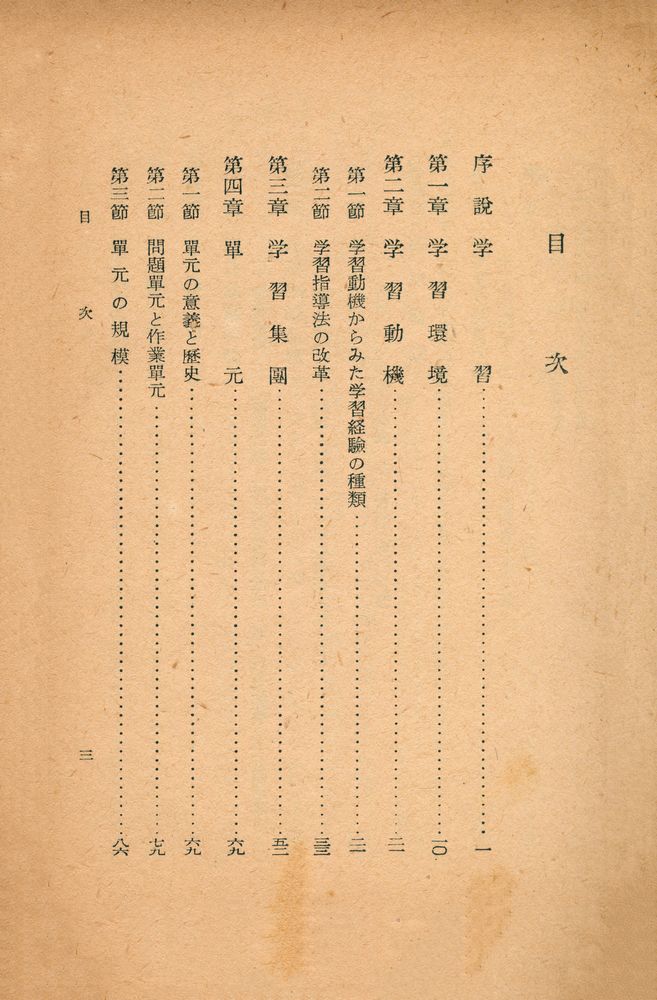 目次
序説 学習……一
第一章 学習環境……一〇
第二章 学習動機……二一
第一節 学習動機からみた学習経驗の種類……二一
第二節 学習指導法の改革……三三
第三章 学習集團……五二
第四章 單元……六九
第一節 單元の意義と歴史……六九
第二節 問題單元と作業單元……七九
第三節 單元の規模……八六
目次 三